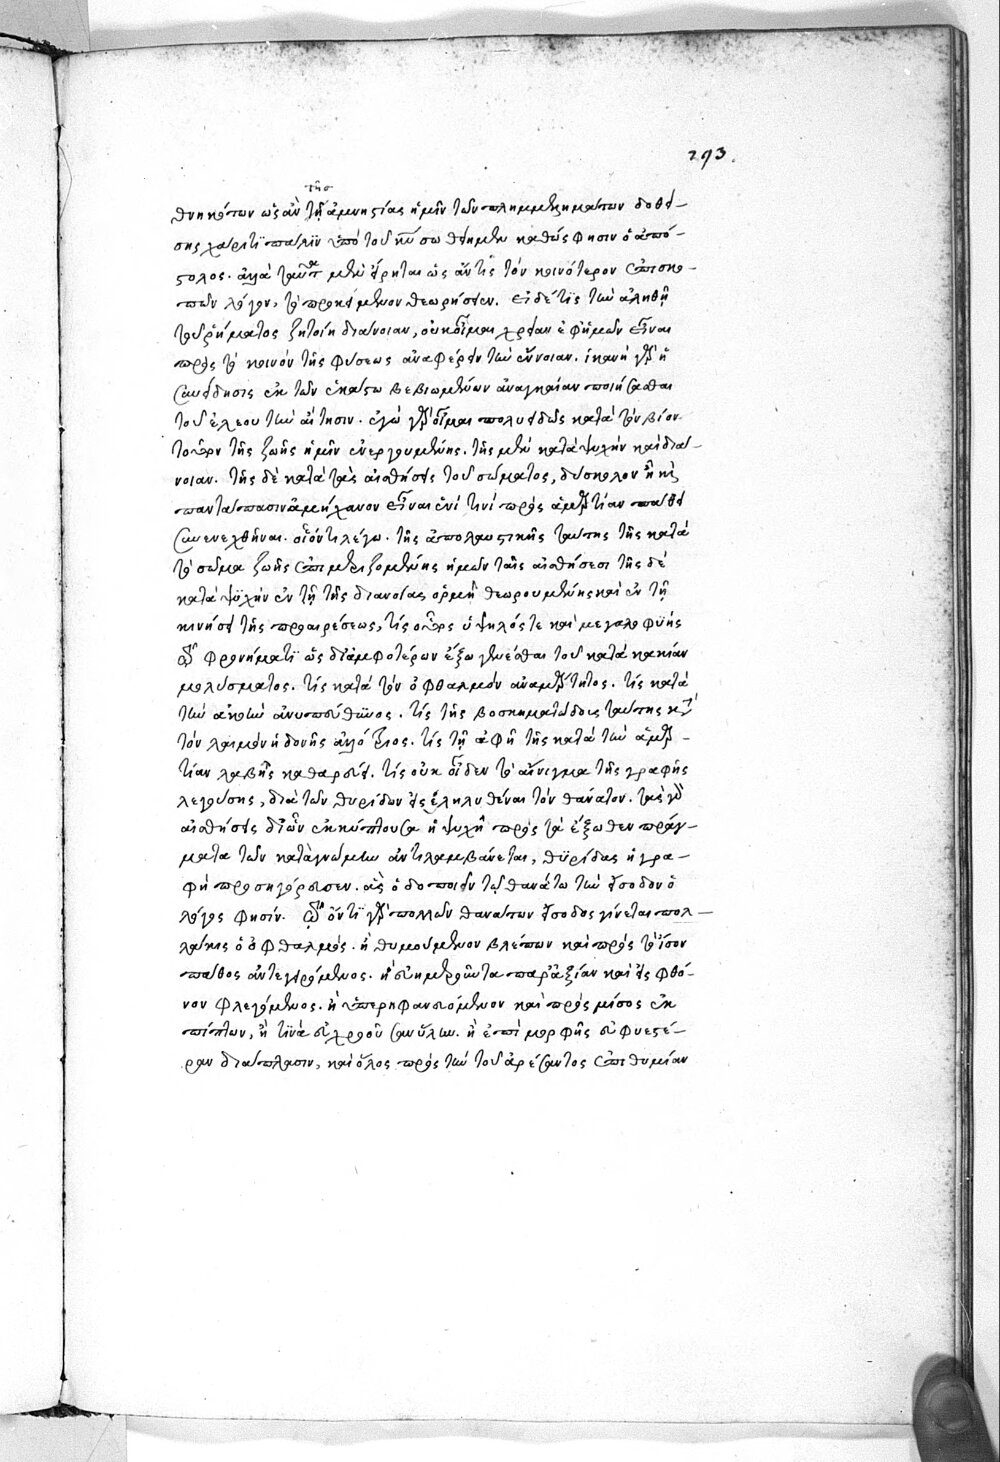 293.
της
θνηκότων ὡς ἂν τῇ ἀμνηστίας ἡμῖν τῶν πλημμελημάτων δοθεί-
σης χάριτι πάλιν ὑπὸ τοῦ κυ σωθείημεν καθώς φησιν ὁ ἀπό-
στολος. ἀλλὰ ταῦτα μὲν εἴρηται ὡς ἄν τις τὸν κοινότερον ἐπισκο-
πῶν λόγον, τὸ προκείμενον θεωρήσειεν. εἰ δέ τις τὴν ἀληθῆ
τοῦ ῥήματος ζητοίη διάνοιαν, οὐκ οἶμαι χρείαν ἐφ' ἡμῶν εἶναι
πρὸς τὸ κοινὸν τῆς φύσεως ἀναφέρειν τὴν ἔννοιαν. ἱκανὴ γὰρ ἡ
συνείδησις ἐκ τῶν ἑκάστω βεβιωμένων ἀναγκαίαν ποιήσασθαι
τοῦ ἐλέου τὴν αἴτησιν. ἐγὼ γὰρ οἶμαι πολυειδῶς κατὰ τὸν βίον
τοῦτον τῆς ζωῆς ἡμῖν ἐνεργουμένης. τῆς μὲν κατὰ ψυχὴν καὶ διά-
νοιαν. τῆς δὲ κατὰ τὰς αἰσθήσεις τοῦ σώματος, δύσκολον ἢ καὶ
παντάπασιν ἀμήχανον εἶναι ἑνί τινι πρὸς ἁμαρτίαν πάθει
συνενεχθῆναι. οἷόν τι λέγω. τῆς ἀπολαυστικῆς ταύτης τῆς κατὰ
τὸ σῶμα ζωῆς ἐπιμεριζομένης ἡμῶν ταῖς αἰσθήσεσι τῆς δὲ
κατὰ ψυχὴν ἐν τῇ τῆς διανοίας ὁρμῇ θεωρουμένης καὶ ἐν τῇ
κινήσει τῆς προαιρέσεως, τίς οὕτως ὑψηλός τε καὶ μεγαλοφυὴς
φρονήματι ὡς δι' ἀμφοτέρων ἔξω γενέσθαι τοῦ κατὰ κακίαν
μολύσματος. τίς κατὰ τὸν ὀφθαλμὸν ἀναμάρτητος. τίς κατὰ
τὴν ἀκοὴν ἀνυπεύθυνος. τίς τῆς βοσκηματώδους ταύτης κατὰ
τὸν λαιμὸν ἡδονῆς ἀλλότριος. τίς τῇ ἁφῇ τῆς κατὰ τὴν ἁμαρ-
τίαν λαβῆς καθαρεύει. τίς οὐκ οἶδεν τὸ αἴνιγμα τῆς γραφῆς
λεγούσης, διὰ τῶν θυρίδων εἰσεληλυθέναι τὸν θάνατον. τὰς γὰρ
αἰσθήσεις δι' ὧν ἐκκύπτουσα ἡ ψυχὴ πρὸς τὰ ἔξωθεν πράγ-
ματα τῶν κατὰ γνώμην ἀντιλαμβάνεται, θυρίδας ἡ γρα-
φὴ προσηγόρευσεν. ἃς ὁδοποιεῖν τῷ θανάτω τὴν εἴσοδον ὁ
λόγος φησίν. ὄντι γὰρ πολλῶν θανάτων εἴσοδος γίνεται πολ-
λάκις ὁ ὀφθαλμός. ἢ θυμούμενον βλέπων καὶ πρὸς τὸ ἴσον
πάθος ἀντεγειρόμενος. ἢ εὐημεροῦντα παρ' ἀξίαν καὶ εἰς φθό-
νον φλεγόμενος. ἢ ὑπερηφανευόμενον καὶ πρὸς μίσος ἐκ
πίπτων, ἢ τινὰ εὔχρουν ὕλην. ἢ ἐπὶ μορφῆς εὐφυεστέ-
ραν διάπλασιν, καὶ ὅλος πρὸς τὴν τοῦ ἀρέσαντος ἐπιθυμίαν